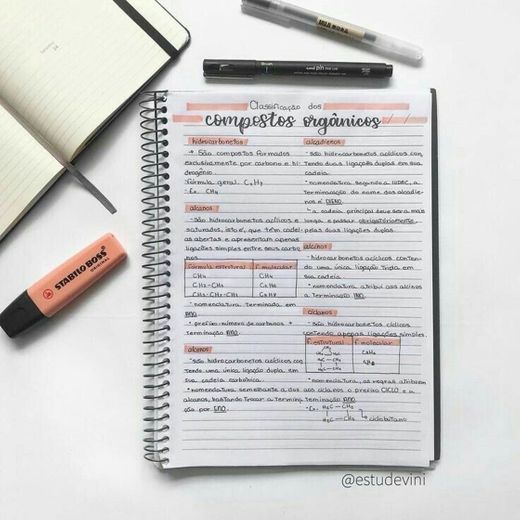 MUJI
uni pin
STABILO BOSS
ORIGINAL
Classificação dos
compostos orgânicos
hidrocarbonetos
São compostos formados
exclusivamente por carbono e hi-
drogênio.
fórmula geral: CxHy
Ex: CH4
alcanos
são hidrocarbonetos acíclicos e
saturados, isto é, que têm cadei-
as abertas e apresentam apenas
ligações simples entre seus carbo
nos
fórmula estrutural f. molecular
CH4 CH4
CH3-CH3 C2H6
CH3-CH2-CH3 C3H8
nomenclatura terminada em
ANO
prefixo número de carbonos +
terminação ANO
alcenos
são hidrocarbonetos acíclicos con
tendo uma única ligação dupla em
sua cadeia carbônica.
nomenclatura semelhante a dos
alcanos, bastando trocar a termina
ção por ENO.
alcadienos
são hidrocarbonetos acíclicos con
tendo duas ligações duplas em sua
cadeia.
nomenclatura segundo a IUPAC, a
terminação do nome dos alcadie-
nos é DIENO.
a cadeia principal deve ser a mais
longa e passar obrigatoriamente
pelas duas ligações duplas.
alcinos
hidrocarbonetos acíclicos conten-
do uma única ligação tripla em
sua cadeia.
nomenclatura atribui aos alcinos
a terminação INO.
ciclanos
são hidrocarbonetos cíclicos
contendo apenas ligações simples.
f. estrutural f. molecular
C3H6
C4H8
nomenclatura, as regras atribuem
aos ciclanos o prefixo CICLO e a
terminação ANO.
Ex: H2C - CH2
H2C - CH2 ciclobutano
@estudevini